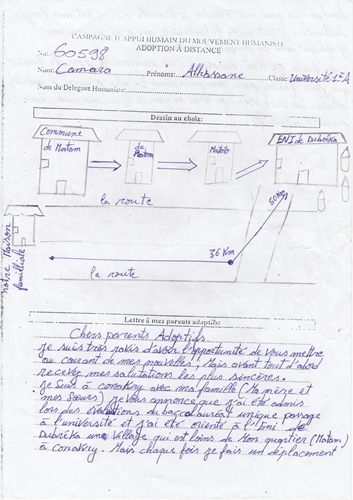 CAMPAGNE D'APPUI HUMAIN DU MOUVEMENT HUMANISTE
ADOPTION À DISTANCE
No: 60598
Nom: Camara Prénoms: Alhassane Classe: Université 1°A
Nom du Délegué Humaniste:
Dessin au choix:
Commune de Matam
de Matam
Matoto
ENI de Dubréka
la route
50 Km
36 Km
notre Maison familliale
la route
Lettre à mes parents adoptifs:
Chers parents Adoptifs
je suis très ravis d'avoir l'opportunité de vous mettre
au courant de mes nouvelles, Mais avant tout d'abord
recevez mes salutations les plus sincères.
je suis à conakry avec ma famille (Ma mère et
mes Sœurs) je vous annonce que j'ai été admis
lors des évaluations du baccalauréat unique passage
à l'université et j'ai été orienté à l'Eni de
Dubréka une Village qui est loins de Mon quartier (Matam)
à Conakry. Mais chaque fois je fais un déplacement